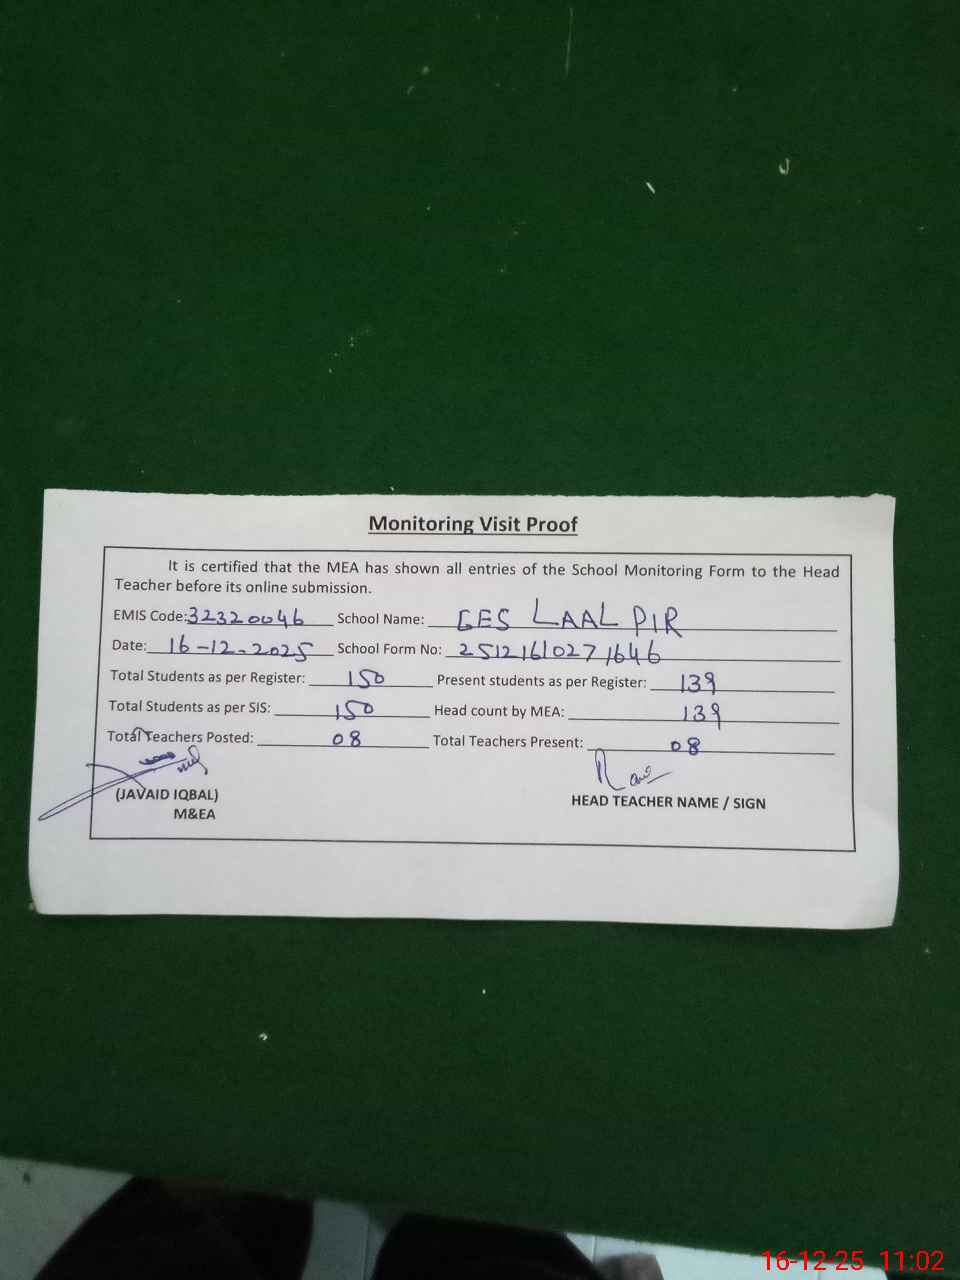 Monitoring Visit Proof
It is certified that the MEA has shown all entries of the School Monitoring Form to the Head
Teacher before its online submission.
EMIS Code: 32320046 School Name: GES LAAL PIR
Date: 16-12-2025 School Form No: 2512161027 1646
Total Students as per Register: 150 Present students as per Register: 139
Total Students as per SIS: 150 Head count by MEA: 139
Total Teachers Posted: 08 Total Teachers Present: 08
(JAVAID IQBAL)
M&EA
HEAD TEACHER NAME / SIGN
16-12-25 11:02